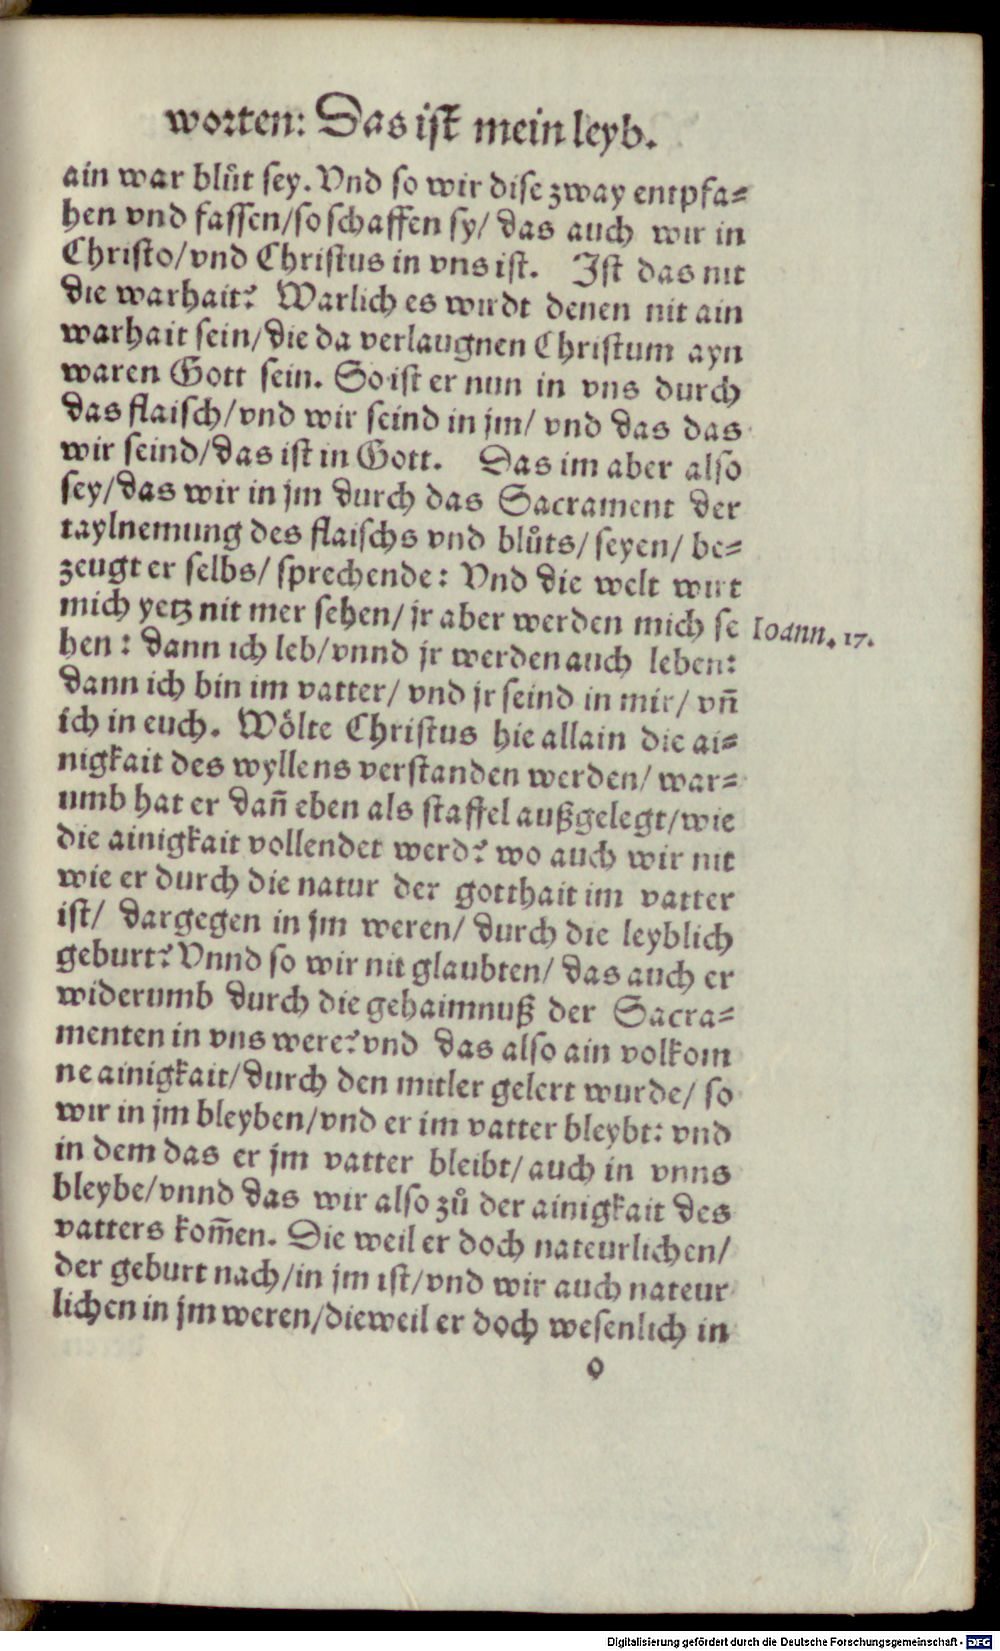 worten: Das ist mein leyb.
ain war blůt sey. Vnd so wir dise zway entpfa⸗
hen vnd fassen/so schaffen sy/ das auch wir in
Christo/vnd Christus in vns ist. Ist das nit
die warhait? Warlich es wirdt denen nit ain
warhait sein/die da verlaugnen Christum ayn
waren Gott sein. So ist er nun in vns durch
das flaisch/vnd wir seind in jm/ vnd das das
wir seind/das ist in Gott. Das im aber also
sey/das wir in jm durch das Sacrament der
taylnemung des flaischs vnd blůts/ seyen/ be⸗
zeugt er selbs/ sprechende: Vnd die welt wirt
mich yetz nit mer sehen/ jr aber werden mich se
Ioann. 17.
hen: dann ich leb/vnnd jr werden auch leben:
dann ich bin im vatter/ vnd jr seind in mir/ vñ
ich in euch. Wölte Christus hie allain die ai⸗
nigkait des wyllens verstanden werden/ war⸗
umb hat er dañ eben als staffel außgelegt/wie
die ainigkait vollendet werd? wo auch wir nit
wie er durch die natur der gotthait im vatter
ist/ dargegen in jm weren/ durch die leyblich
geburt? Vnnd so wir nit glaubten/ das auch er
widerumb durch die gehaimnuß der Sacra⸗
menten in vns were? vnd das also ain volkom
ne ainigkait/durch den mitler gelert wurde/ so
wir in jm bleyben/vnd er im vatter bleybt: vnd
in dem das er jm vatter bleibt/auch in vnns
bleybe/vnnd das wir also zů der ainigkait des
vatters kom̃en. Die weil er doch nateurlichen/
der geburt nach/in jm ist/vnd wir auch nateur
lichen in jm weren/dieweil er doch wesenlich in
o
Digitalisierung gefördert durch die Deutsche Forschungsgemeinschaft - DFG